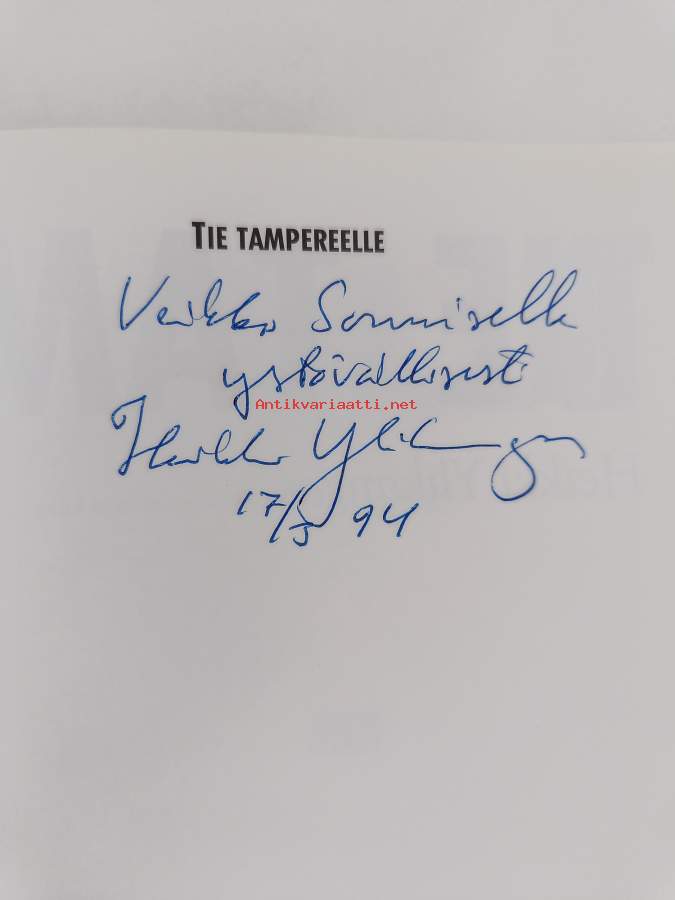 TIE TAMPEREELLE
Veikko Sonniselle
ystävällisesti
Antikvariaatti.net
Heikki Ylikangas
17/3 94